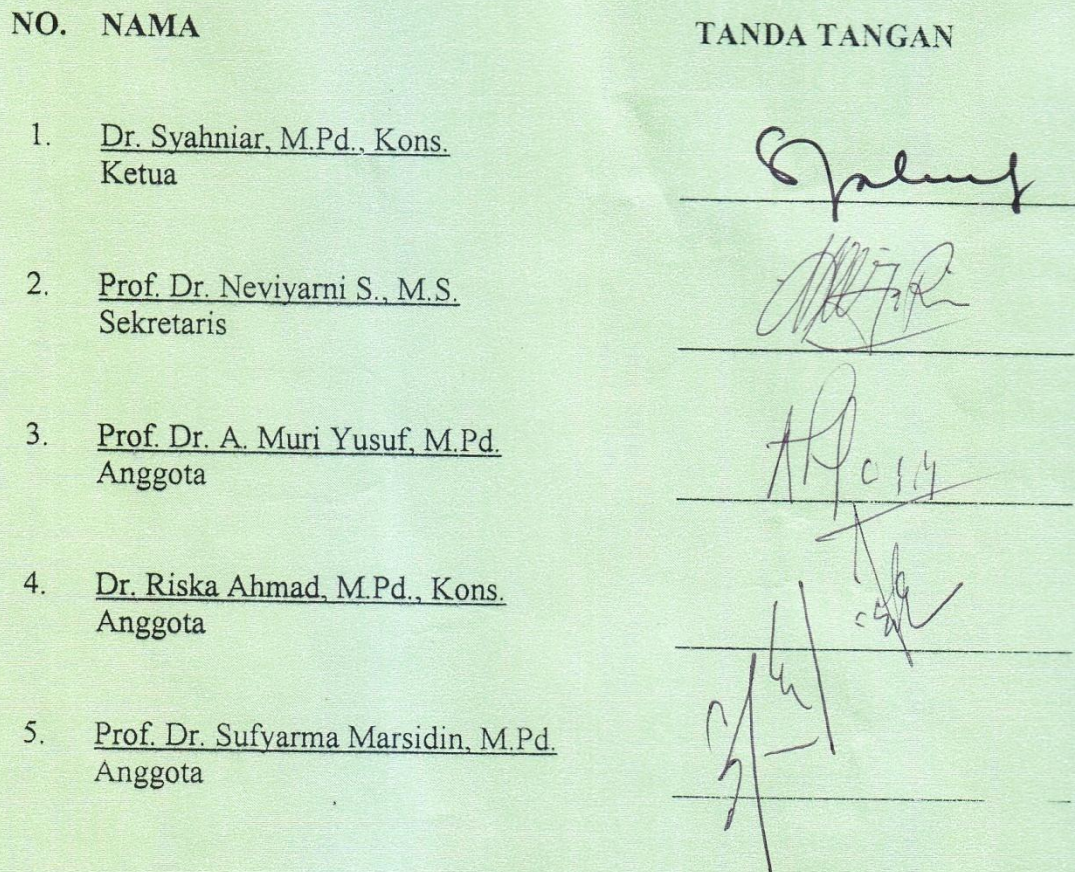 NO. NAMA TANDA TANGAN
1. Dr. Syahniar, M.Pd., Kons.
Ketua
2. Prof. Dr. Neviyarni S., M.S.
Sekretaris
3. Prof. Dr. A. Muri Yusuf, M.Pd.
Anggota
4. Dr. Riska Ahmad, M.Pd., Kons.
Anggota
5. Prof. Dr. Sufyarma Marsidin, M.Pd.
Anggota